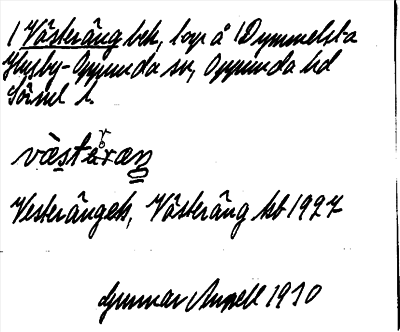 / Västeräng beb, lop å /Dymmelsta
Husby-Oppunda sn, Oppunda hd
Söml l.
västäran
Vesterängeh, Västeräng kb 1927
Gunnar Ampell 1910